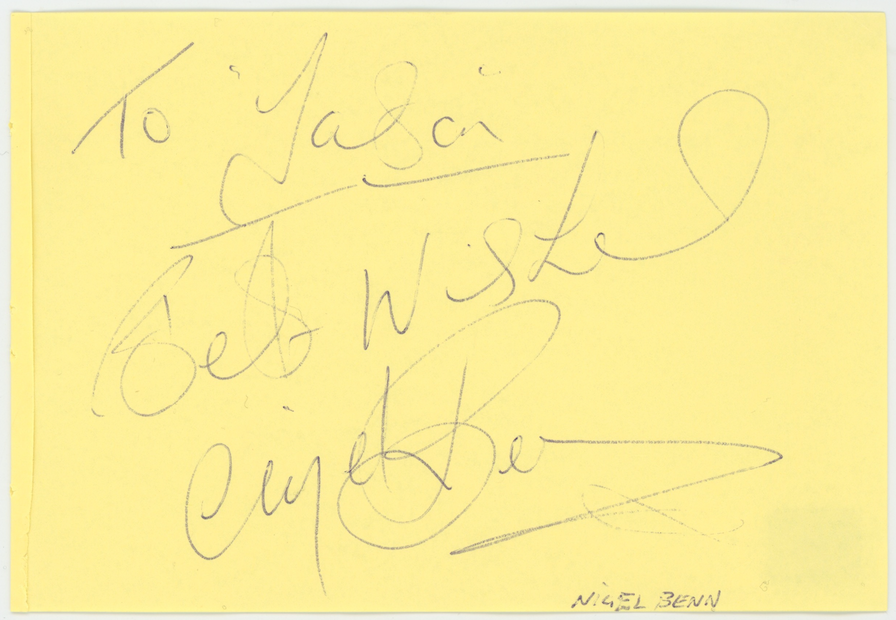 To "Jason"
Best Wishes
Nigel Benn
NIGEL BENN